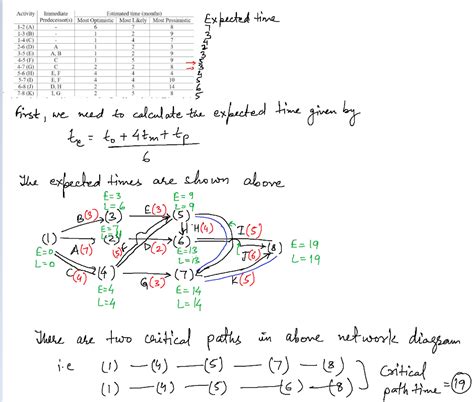 Activity Immediate Estimated time (months)
Predecessor(s) Most Optimistic Most Likely Most Pessimistic
Expected time
1-2 (A) - 6 7 8 7
1-3 (B) - 1 2 9 3
1-4 (C) - 1 4 7
2-6 (D) A 1 2 3
3-5 (E) A, B 1 2 9
4-5 (F) C 1 5 9
4-7 (G) C 2 2 8
5-6 (H) E, F 4 4 4
5-7 (I) E, F 4 4 10 5
6-8 (J) D, H 2 5 14 6
7-8 (K) I, G 2 5 8 5
First, we need to calculate the expected time given by
te = to + 4tm + tp
6
The expected times are shown above
E=3 E=9
L=6 L=9
B(3) (3) E(3) (5)
E=7 H(4) I(5)
(1) (2) (6) (8) E=19
A(7) (5) D(2) E=13 J(6) L=19
E=0 L=13
L=0 C(4) (4) G(3) (7) K(5)
E=4 E=14
L=4 L=14
There are two critical paths in above network diagram
i.e (1) — (4) — (5) — (7) — (8) Critical
(1) — (4) — (5) — (6) — (8) path time = 19